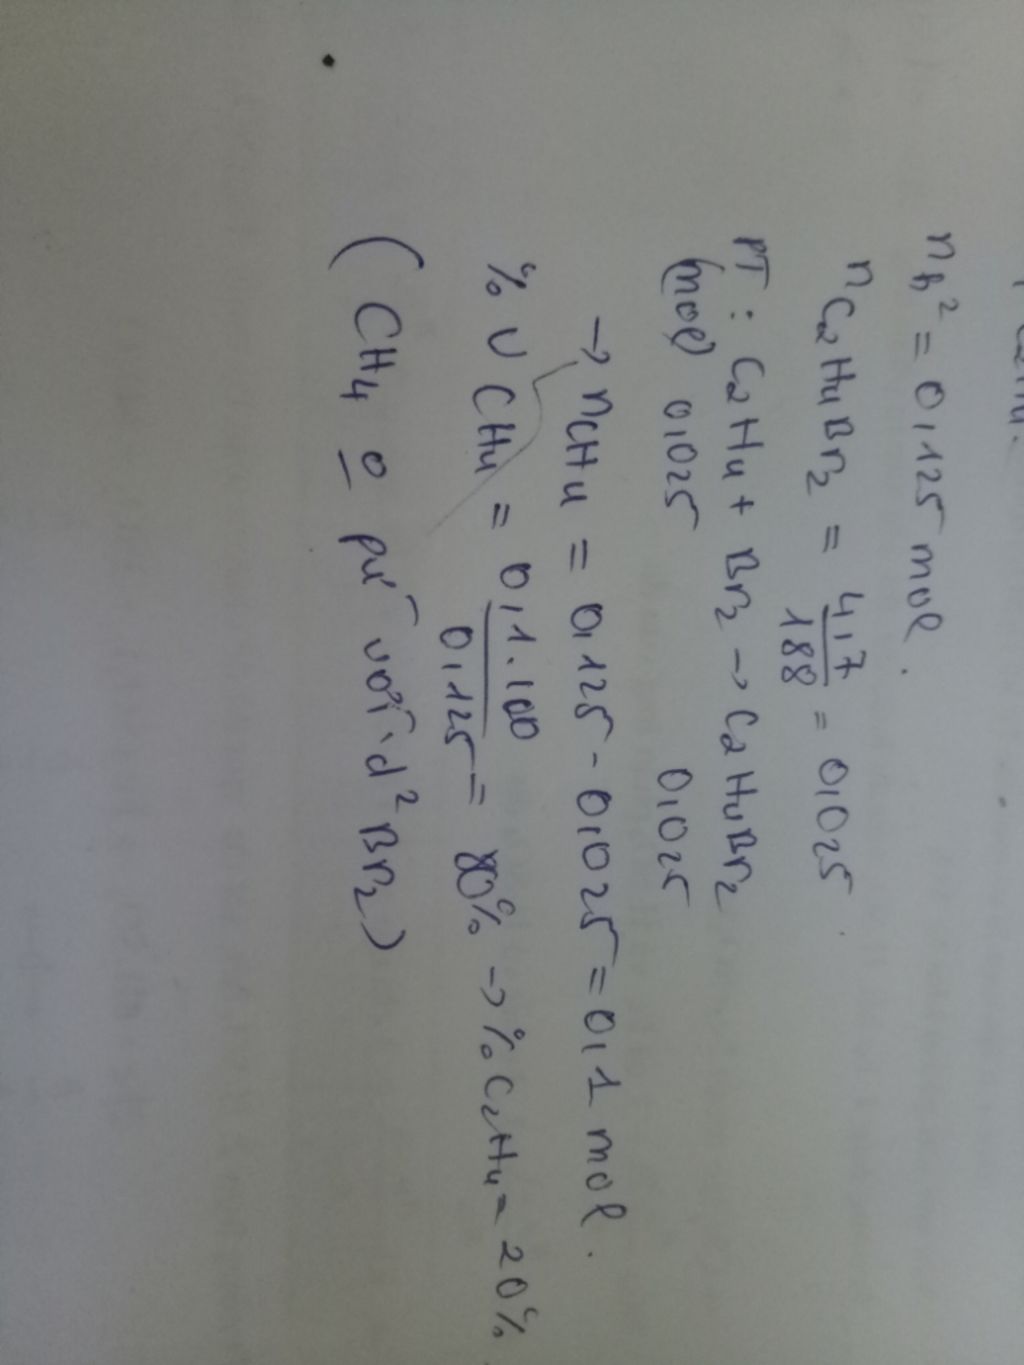 n h² = 0,125 mol.
n C₂H₄Br₂ = 4,7/188 = 0,025
PT : C₂H₄ + Br₂ → C₂H₄Br₂
(mol) 0,025 0,025
→ nCH₄ = 0,125 - 0,025 = 0,1 mol.
% V CH₄ = 0,1.100/0,125 = 80% → % C₂H₄ = 20%
( CH₄ o pứ với d² Br₂ )